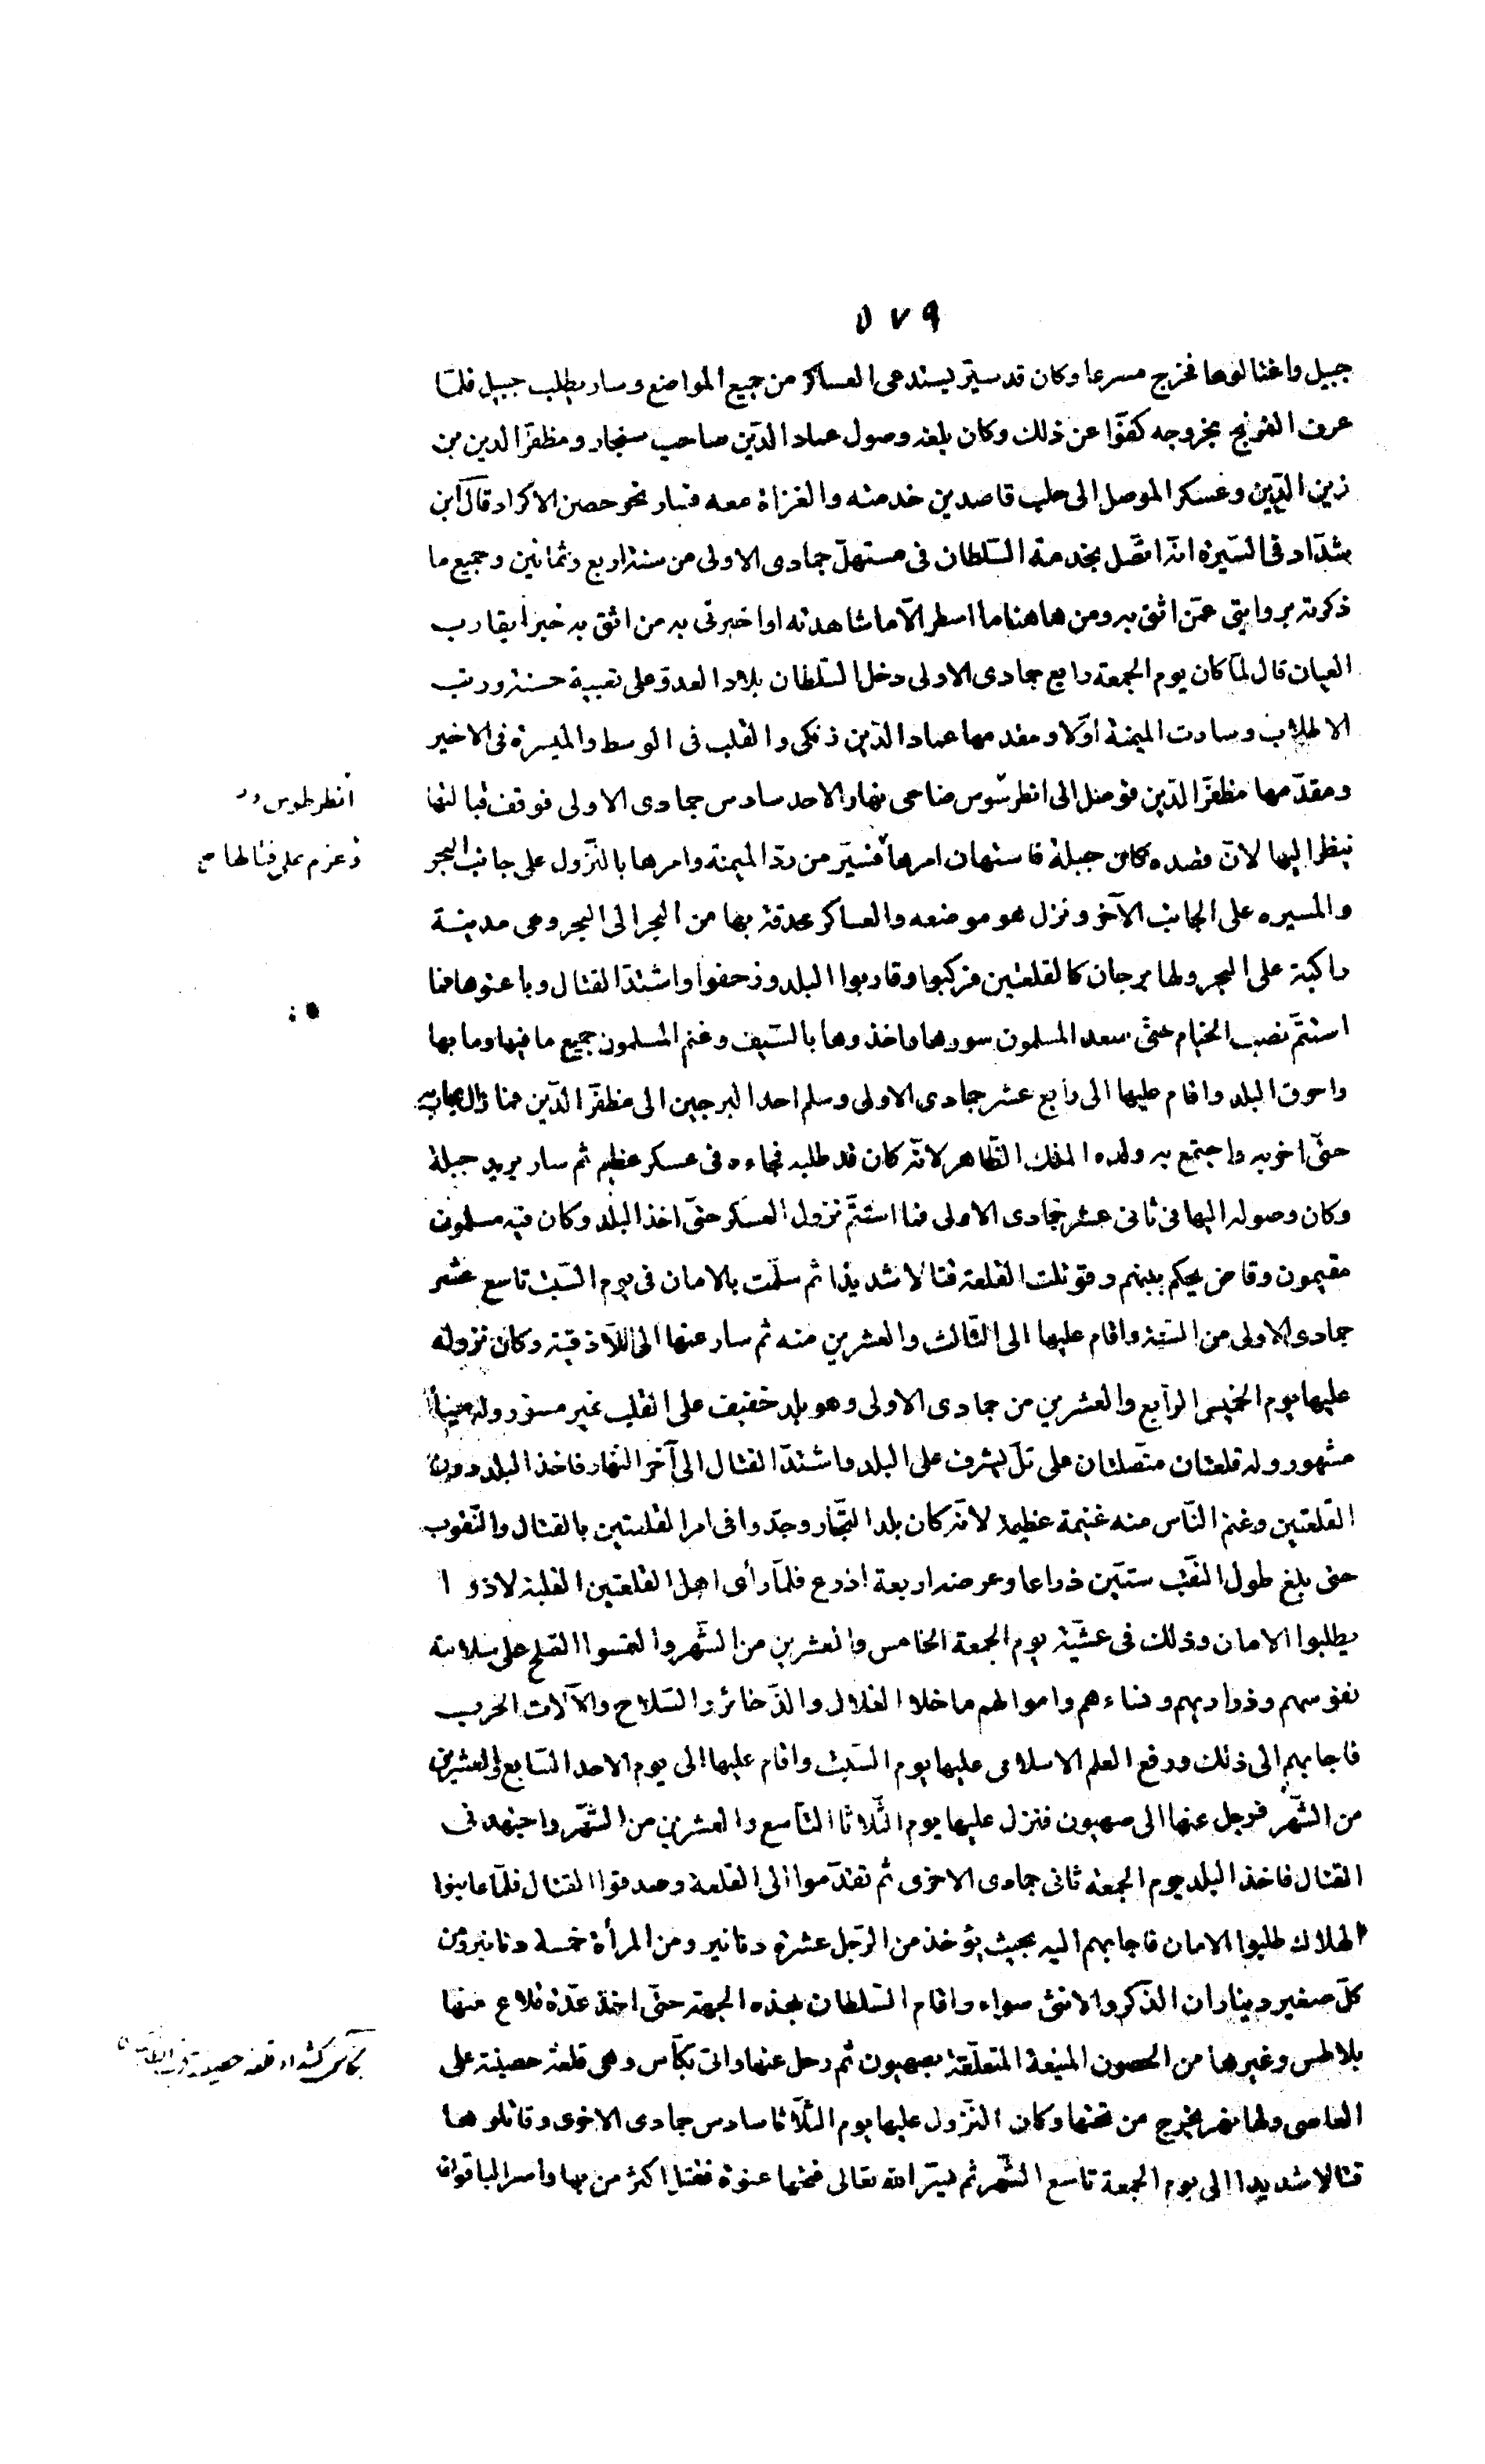 ٥٧٩
جبيل واغتالوها فخرج مسرعا وكان قد سيّر ليستدعى العساكر من جميع المواضع وسار يطلب جبيل فلمّا
عرف الفرنج بخروجه كفّوا عن ذلك وكان بلغه وصول عماد الدّين صاحب سنجار ومظفّر الدين بن
زين الدّين وعسكر الموصل الى حلب قاصدين خدمته والغزاة معه فسار نحو حصن الاكراد قال ابن
شدّاد فى السّيرة انّه اتّصل بخدمة السّلطان فى مستهلّ جمادى الاولى من سنة اربع وثمانين وجميع ما
ذكرته بروايتى عمّن اثق به ومن هاهنا ما اسطر الّا ما شاهدته او اخبرنى به من اثق به خبرا يقارب
العيان قال لمّا كان يوم الجمعة رابع جمادى الاولى دخل السّلطان بلاد العدوّ على تعبية حسنة ورتب
الاطلاب وسارت الميمنة اوّلا ومقدمها عماد الدّين زنكى والقلب فى الوسط والميسرة فى الاخير
ومقدّمها مظفّر الدّين فوصل الى انطرسوس ضاحى نهار الاحد سادس جمادى الاولى فوقف قبالتها
انطرطوس
ينظر اليها لانّ قصده كان جبلة فاستهان امرها فسيّر من ردّ الميمنة وامرها بالنّزول على جانب البحر
وعزم على قتالها صح
والمسيره على الجانب الآخر ونزل هو موضعه والعساكر محدقة بها من البحر الى البحر وهى مدينة
راكبة على البحر ولها برجان كالقلعتين فركبوا وقاربوا البلد وزحفوا واشتدّ القتال وباغتوها فما
استتمّ نصب الخيام حتّى صعد المسلمون سورها واخذوها بالسّيف وغنم المسلمون جميع ما فيها وما بها
واحرق البلد واقام عليها الى رابع عشر جمادى الاولى وسلم احد البرجين الى مظفّر الدّين فما زال يحاربه
حتّى اخربه واجتمع به ولده الملك الظّاهر لانّه كان قد طلبه فجاءه فى عسكر عظيم ثم سار يريد جبلة
وكان وصوله اليها فى ثانى عشر جمادى الاولى فما استتمّ نزول العسكر حتّى اخذ البلد وكان فيه مسلمون
مقيمون وقاض يحكم بينهم وقوتلت القلعة قتالا شديدا ثم سلّمت بالامان فى يوم السّبت تاسع عشر
جمادى الاولى من السّنة واقام عليها الى الثّالث والعشرين منه ثم سار عنها الى اللّاذقية وكان نزوله
عليها يوم الخميس الرّابع والعشرين من جمادى الاولى وهو بلد خفيف على القلب غير مسوّر وله ميناء
مشهور وله قلعتان متّصلتان على تلّ يشرف على البلد واشتدّ القتال الى آخر النّهار فاخذ البلد دون
القلعتين وغنم النّاس منه غنيمة عظيمة لانّه كان بلد التّجّار وجدّوا فى امر القلعتين بالقتال والنّقوب
حتى بلغ طول النّقب ستّين ذراعا وعرضه اربعة اذرع فلمّا رأى اهل القلعتين الغلبة لاذوا
يطلبوا الامان وذلك فى عشيّة يوم الجمعة الخامس والعشرين من الشّهر والتمسوا الصّلح على سلامة
نفوسهم وذراريهم ونساءهم واموالهم ما خلا الغلال والذّخائر والسّلاح والآلات الحرب
فاجابهم الى ذلك ورفع العلم الاسلامى عليها يوم السّبت واقام عليها الى يوم الاحد السّابع والعشرين
من الشّهر فرحل عنها الى صهيون فنزل عليها يوم الثّلاثا التّاسع والعشرين من الشّهر واجتهد فى
القتال فاخذ البلد يوم الجمعة ثانى جمادى الاخرى ثم تقدّموا الى القلعة وصدقوا القتال فلمّا عاينوا
الهلاك طلبوا الامان فاجابهم اليه بحيث يؤخذ من الرّجل عشرة دنانير ومن المرأة خمسة دنانير ومن
كلّ صغير ديناران الذّكر والانثى سواء واقام السّلطان بهذه الجهة حتّى اخذ عدّة قلاع منها
بلاطس وغيرها من الحصون المنيعة المتعلّقة بصهيون ثم رحل عنها واتى بكّاس وهى قلعة حصينة على
بكّاس كشداد قلعة حصينة
العاصى ولها نهر يخرج من تحتها وكان النّزول عليها يوم الثّلاثا سادس جمادى الاخرى وقاتلوها
قتالا شديدا الى يوم الجمعة تاسع الشّهر ثم يسّر الله تعالى فتحها عنوة فقتل اكثر من بها واسر الباقون